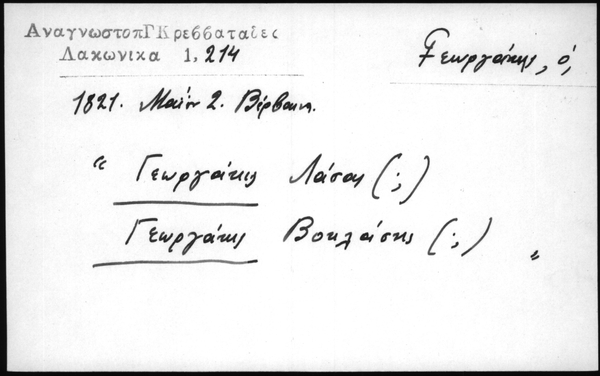 ΑναγνωστοπΓΚρεββαταδες
Λακωνικα 1, 214
Γεωργάκης, ὁ,
1821. Μαΐου 2. Βέρβαινα.
“ Γεωργάκις Λάσας (;)
Γεωργάκης Βουλάσης (;) „